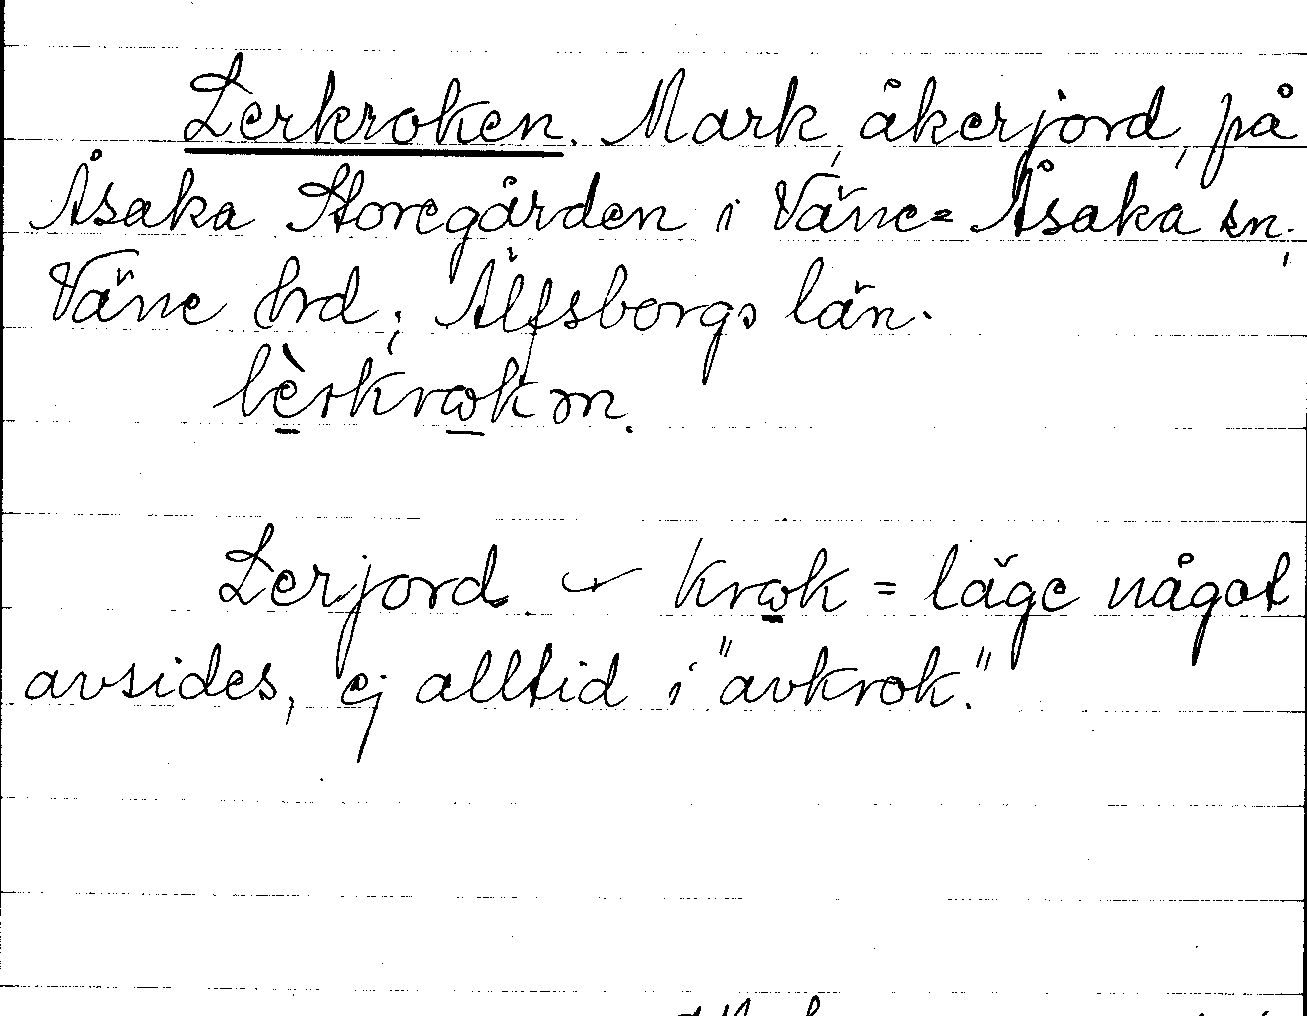 Lerkroken. Mark, åkerjord, på
Åsaka Storegården i Väne-Åsaka sn,
Väne hrd, Älfsborgs län.
lèrkrωkm.
Lerjord. – Krωk = läge något
avsides, ej alltid i "avkrok."